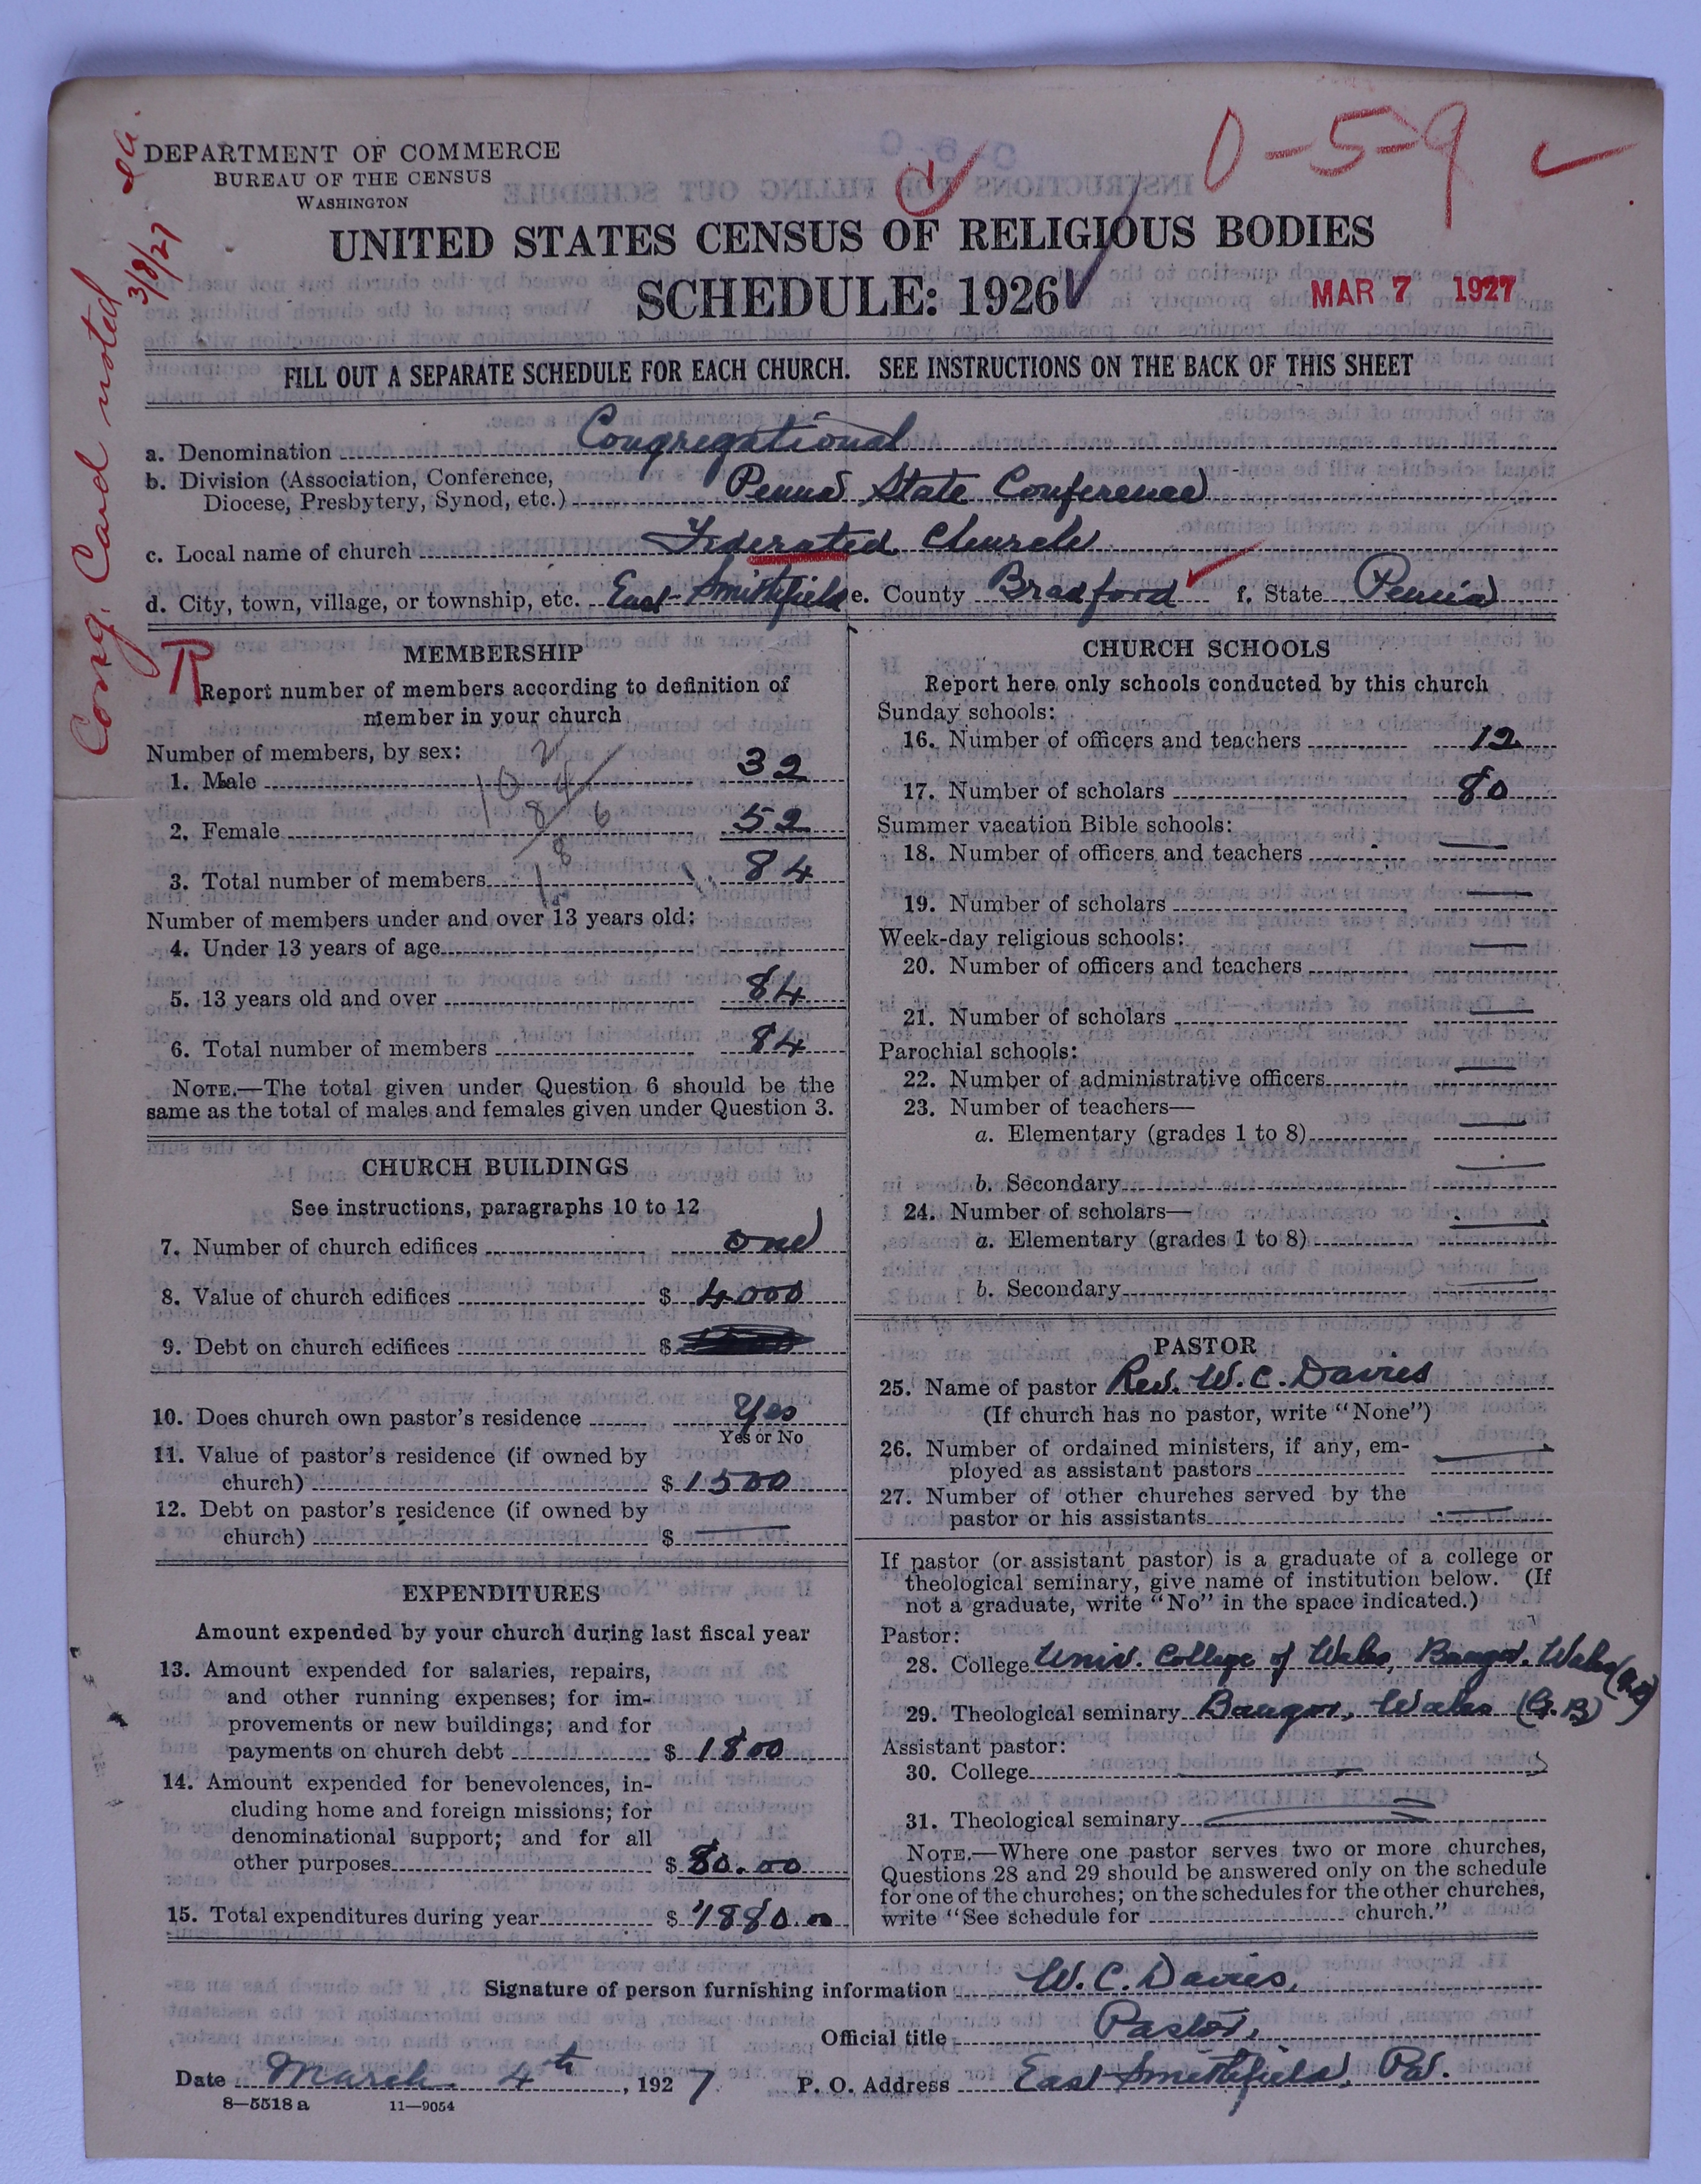 DEPARTMENT OF COMMERCE
BUREAU OF THE CENSUS
WASHINGTON
0-5-9
UNITED STATES CENSUS OF RELIGIOUS BODIES
SCHEDULE: 1926
MAR 7 1927
Cong. Card noted
3/8/27
FILL OUT A SEPARATE SCHEDULE FOR EACH CHURCH. SEE INSTRUCTIONS ON THE BACK OF THIS SHEET
a. Denomination Congregational
b. Division (Association, Conference,
Diocese, Presbytery, Synod, etc.) Penna State Conference
c. Local name of church Federated Church
d. City, town, village, or township, etc. East Smithfield e. County Bradford f. State Penna
R
MEMBERSHIP
Report number of members according to definition of
member in your church
Number of members, by sex:
1. Male 32
2. Female 52
3. Total number of members 84
Number of members under and over 13 years old:
4. Under 13 years of age
5. 13 years old and over 84
6. Total number of members 84
NOTE.—The total given under Question 6 should be the
same as the total of males and females given under Question 3.
CHURCH BUILDINGS
See instructions, paragraphs 10 to 12
7. Number of church edifices one
8. Value of church edifices $ 4000
9. Debt on church edifices $
10. Does church own pastor's residence Yes
Yes or No
11. Value of pastor's residence (if owned by
church) $ 1500
12. Debt on pastor's residence (if owned by
church) $ —
EXPENDITURES
Amount expended by your church during last fiscal year
13. Amount expended for salaries, repairs,
and other running expenses; for im-
provements or new buildings; and for
payments on church debt $ 1800
14. Amount expended for benevolences, in-
cluding home and foreign missions; for
denominational support; and for all
other purposes $ 80.00
15. Total expenditures during year $ 1880.00
CHURCH SCHOOLS
Report here only schools conducted by this church
Sunday schools:
16. Number of officers and teachers 12
17. Number of scholars 80
Summer vacation Bible schools:
18. Number of officers and teachers —
19. Number of scholars —
Week-day religious schools:
20. Number of officers and teachers —
21. Number of scholars —
Parochial schools:
22. Number of administrative officers —
23. Number of teachers—
a. Elementary (grades 1 to 8) —
b. Secondary —
24. Number of scholars—
a. Elementary (grades 1 to 8) —
b. Secondary —
PASTOR
25. Name of pastor Rev. W. C. Davies
(If church has no pastor, write "None")
26. Number of ordained ministers, if any, em-
ployed as assistant pastors —
27. Number of other churches served by the
pastor or his assistants —
If pastor (or assistant pastor) is a graduate of a college or
theological seminary, give name of institution below. (If
not a graduate, write "No" in the space indicated.)
Pastor:
28. College Univ. College of Wales, Bangor, Wales
29. Theological seminary Bangor, Wales (G.B)
Assistant pastor:
30. College —
31. Theological seminary —
NOTE.—Where one pastor serves two or more churches,
Questions 28 and 29 should be answered only on the schedule
for one of the churches; on the schedules for the other churches,
write "See schedule for church."
Signature of person furnishing information W. C. Davies,
Official title Pastor,
Date March 4th, 1927 P. O. Address East Smithfield, Pa.
8—5518 a 11—9054